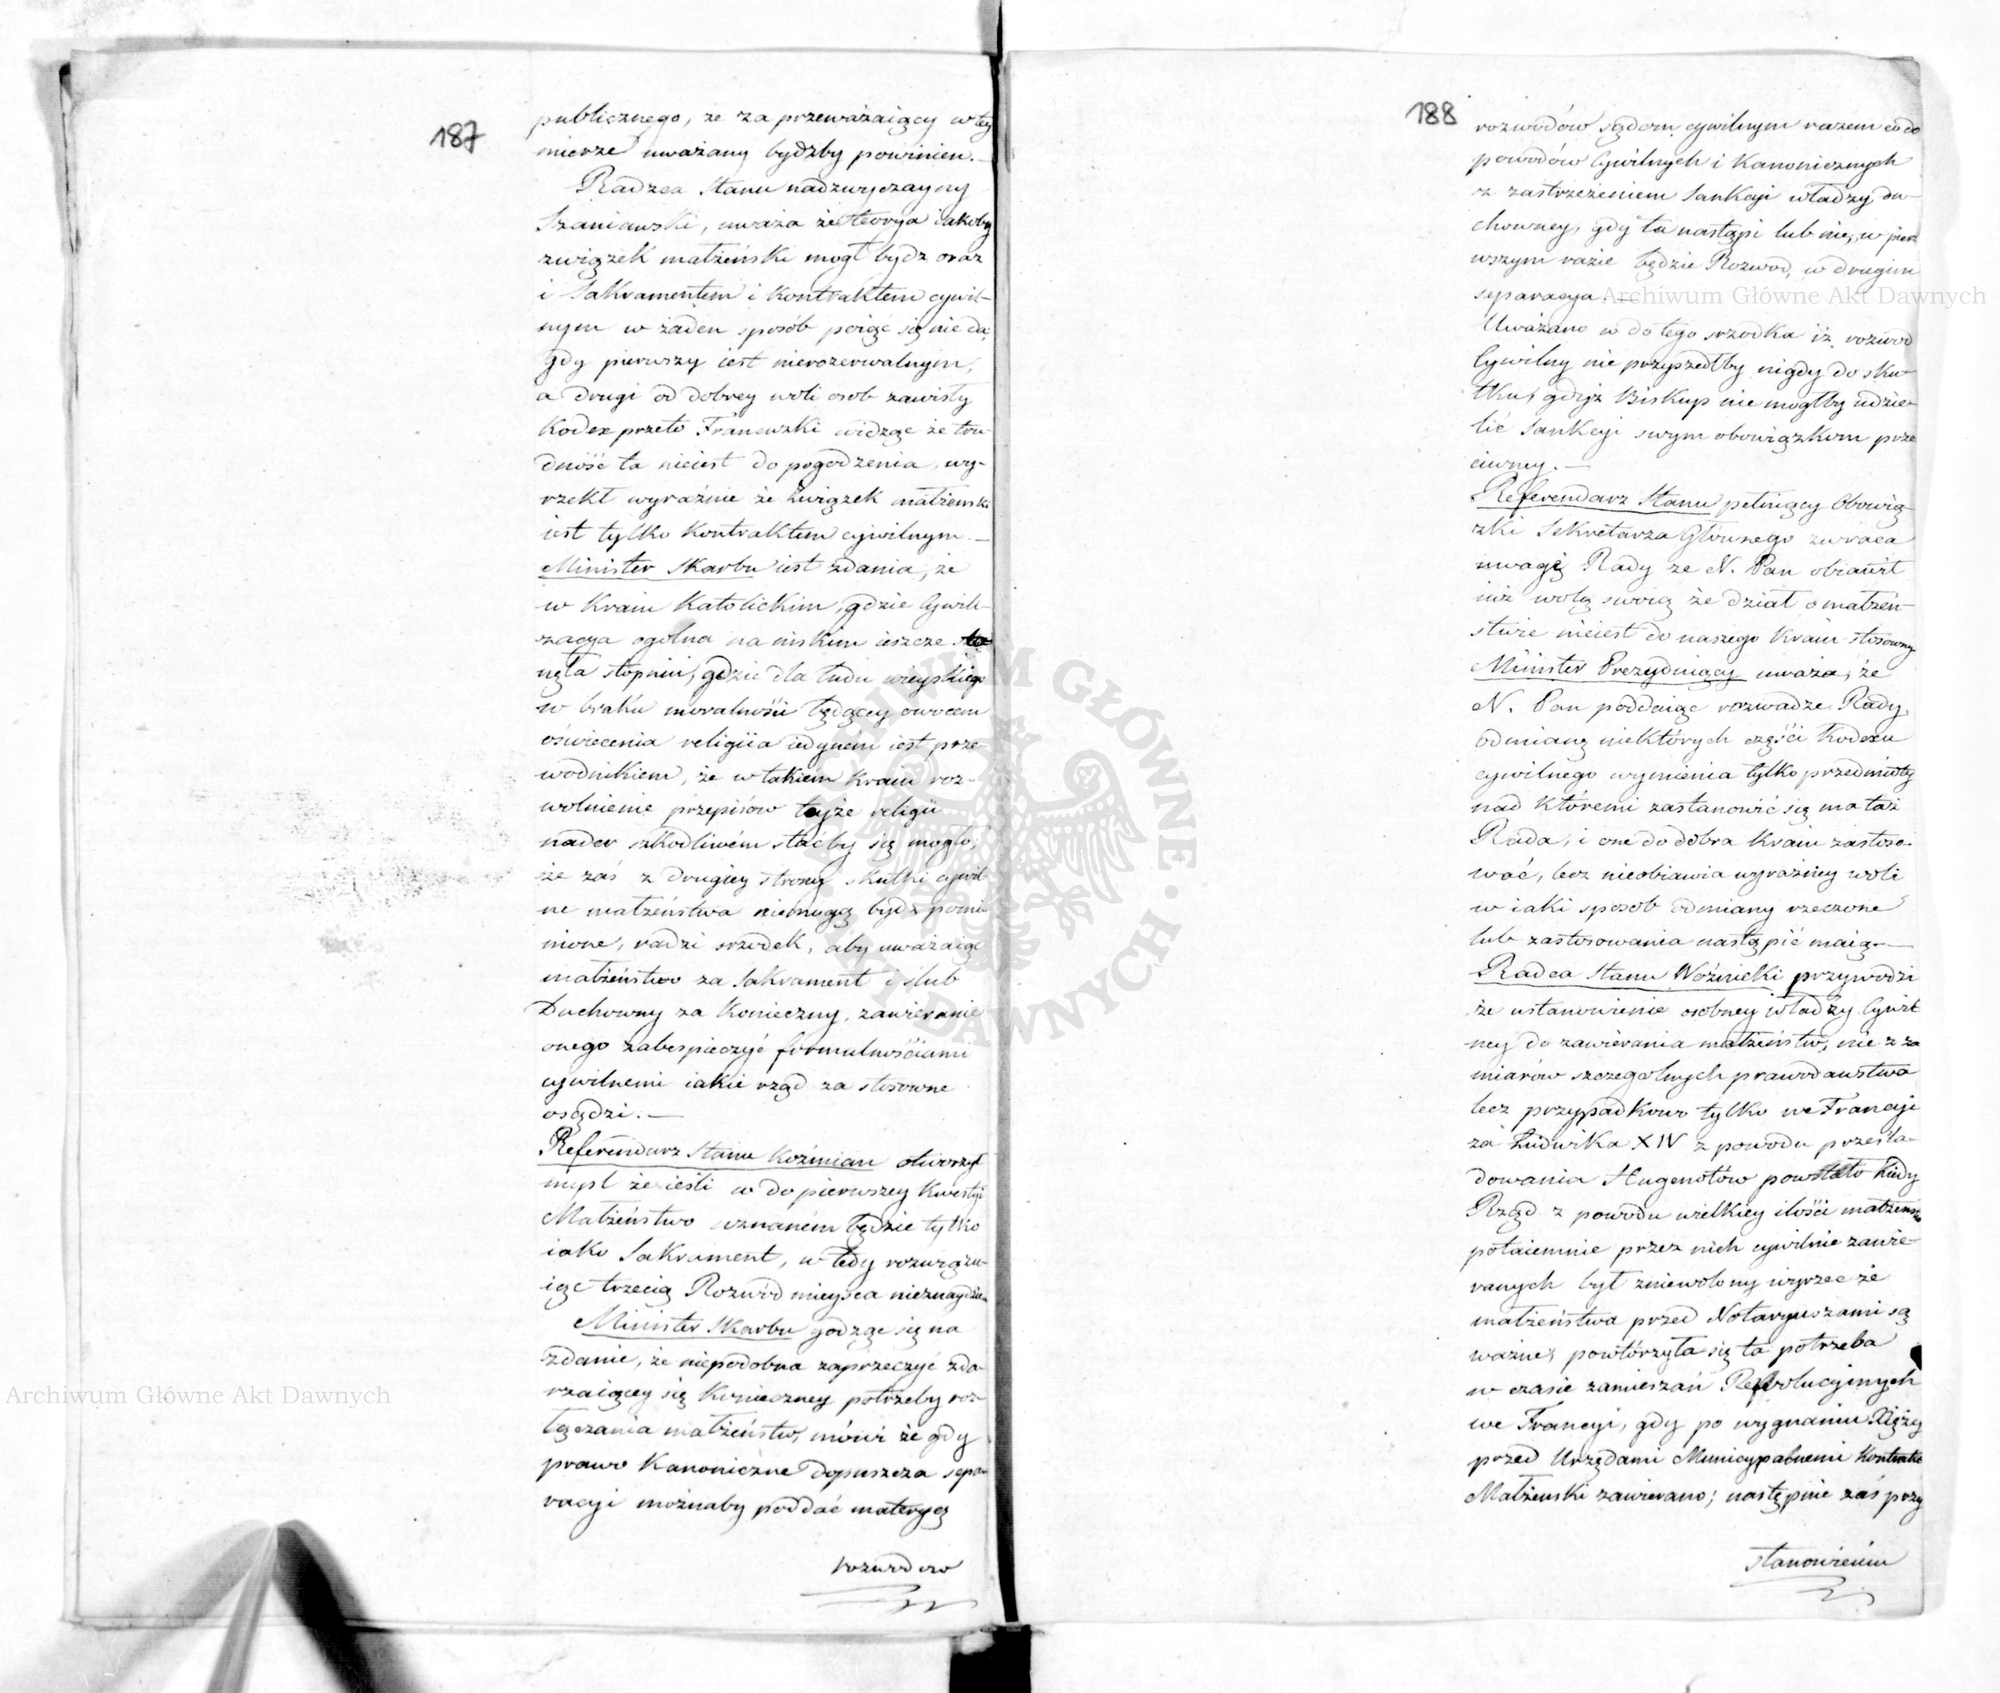 187
publicznego, że za przeważaiący w tey
mierze uważany bydźby powinien. —
Radzca Stanu nadzwyczayny
Szaniawski, uważa że teorya iakoby
związek małżeński mogł bydz oraz
i Sakramentem i Kontraktem cywil-
nym w żaden sposób poiąć się nie da,
gdy pierwszy iest nierozerwalnym,
a drugi od dobrey woli osob zawisły
Kodex przeto Francuzki widząc że tru-
dność ta nieiest do pogodzenia, wy-
rzekł wyraźnie że Związek małżeński
iest tylko Kontraktem cywilnym. —
Minister Skarbu iest zdania, że
w Kraiu Katolickim, gdzie Cywili-
zacya ogolna na niskim ieszcze sta-
nęła stopniu, gdzie dla ludu wieyskiego
w braku moralności będącey owocem
oświecenia religiia iedynem iest prze-
wodnikiem, że w takiem Kraiu roz-
wolnienie przepisów teyże religii
nader szkodliwém stać by się mogło,
że zaś z drugiey strony skutki cywil-
ne małżeństwa niemogą bydź pomi-
nione, radzi srzodek, aby uważaiąc
małżeństwo za Sakrament i slub
Duchowny za Konieczny, zawieranie
onego zabespieczyć formulnościami
cywilnemi iakie rząd za stosowne
osądzi. —
Referendarz Stanu Koźmian otworzył
mysl że ieśli w do pierwszey Kwestyi
Małżeństwo uznaném będzie tylko
iako Sakrament, w tedy rozwiązu-
iąc trzecią Rozwód mieysca nieznaydzie
Minister Skarbu godząc się na
zdanie, że niepodobna zaprzeczyć zda-
rzaiącey się Konieczney potrzeby roz-
łączania małżeństw, mówi że gdy
prawo Kanoniczne dopuszcza sepa-
racyi możnaby poddać materyą
rozwodow
188
rozwodów sądom cywilnym razem co do
powodów Cywilnych i Kanonicznych
z zastrzeżeniem Sankcyi władzy du-
chowney, gdy ta nastąpi lub nie, w pier-
wszym razie będzie Rozwod, w drugim
separacya. —
Uważano w do tego srzodka iż rozwod
Cywilny nie przyszedłby nigdy do sku-
tku, gdyż Biskup nie mogłby udzie-
lić Sankcyi swym obowiązkom prze
ciwney. —
Referendarz Stanu pełniący Obowią-
zki Sekretarza Głównego zwraca
uwagę Rady ze N. Pan obiawił
iuż wolą swoią że dział o małżeń-
stwie nieiest do naszego Kraiu stosowny
Minister Prezyduiący uważa, że
N. Pan poddaiąc rozwadze Rady,
odmianę niektórych części Kodexu
cywilnego wymienia tylko przedmioty
nad któremi zastanowić się ma taż
Rada, i one do dobra Kraiu zastoso-
wać, lecz nieobiawia wyraźney woli
w iaki sposob odmiany rzeczone
lub zastosowania nastąpić maią. —
Radca Stanu Woźnicki przywodzi
że ustanowienie osobney władzy Cywil
ney do zawierania małżeństw, nie z za
miarów szczegolnych prawodawstwa
lecz przypadkowo tylko we Francyi
za Ludwika XIV z powodu prześla-
dowania Hugenotów powstało kiedy
Rząd z powodu wielkiey ilości małżeństw
potaiemnie przez nich cywilnie zawie-
ranych był zniewolony wyrzec że
małżeństwa przed Notaryuszami są
ważne; powtórzyła się ta potrzeba
w czasie zamieszań Rewolucyinych
we Francyi, gdy po wygnaniu Xięży
przed Urzędami Municypalnemi Kontrakt
Małżenski zawierano; następnie zaś przy
stanowieniu
Archiwum Główne Akt Dawnych
Archiwum Główne Akt Dawnych
ARCHIWUM GŁÓWNE · AKT DAWNYCH ·